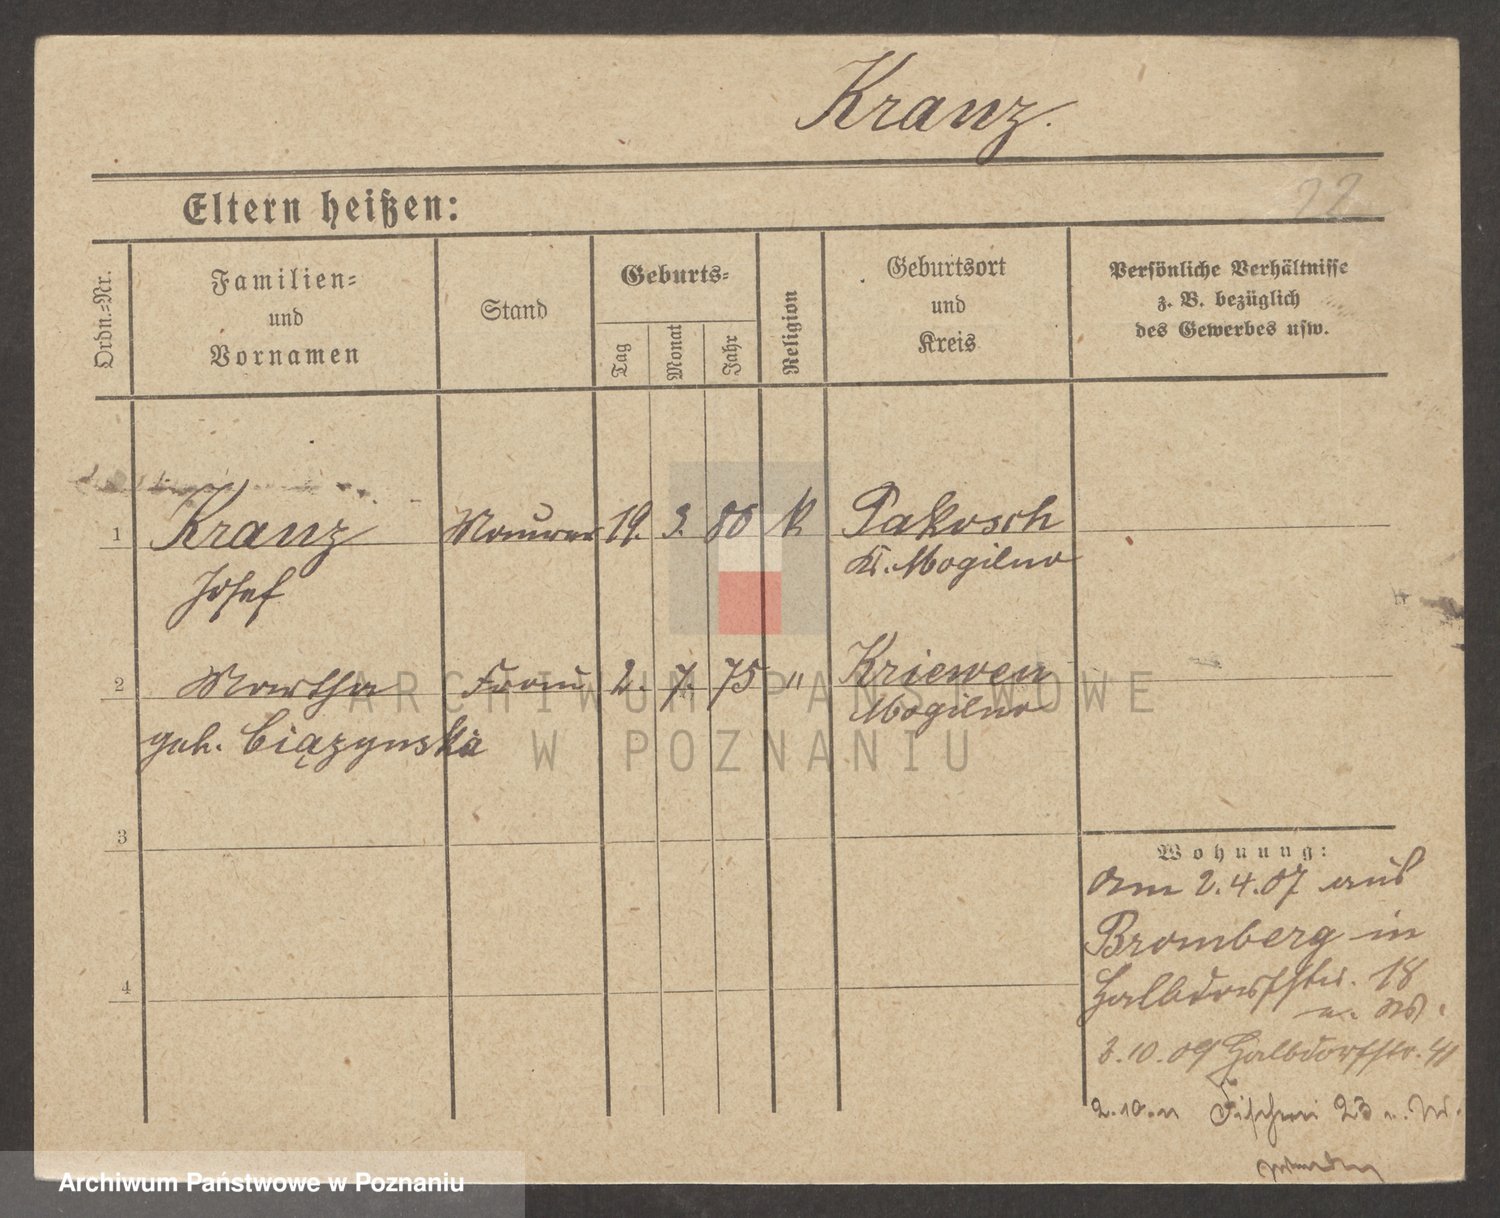 Kranz.
22
Eltern heißen:
Ordn.=Nr.
Familien=
und
Vornamen
Stand
Geburts=
Tag
Monat
Jahr
Religion
Geburtsort
und
Kreis
Persönliche Verhältnisse
z. B. bezüglich
des Gewerbes usw.
1
Kranz
Josef
Maurer
19.
3.
80
k
Pakosch
Kr. Mogilno
2
Martha
geb. Ciązynska
Frau
2.
7.
75
"
Kriewen
Mogilno
3
4
Wohnung:
Am 2.4.07 aus
Bromberg in
Halbdorfstr. 18
3.10.09 Halbdorfstr.
2.10.11 Fischerei 23
ARCHIWUM PAŃSTWOWE
W POZNANIU
Archiwum Państwowe w Poznaniu